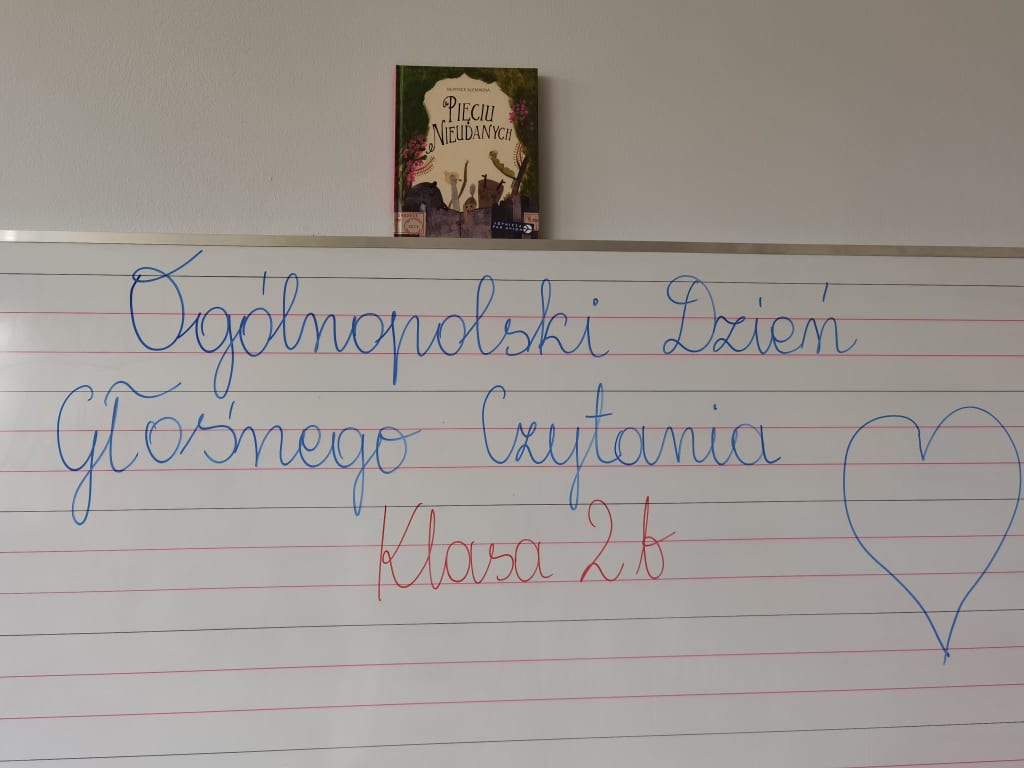 BEATRICE ALEMAGNA
PIĘCIU
NIEUDANYCH
Ogólnopolski Dzień
Głośnego Czytania
Klasa 2b